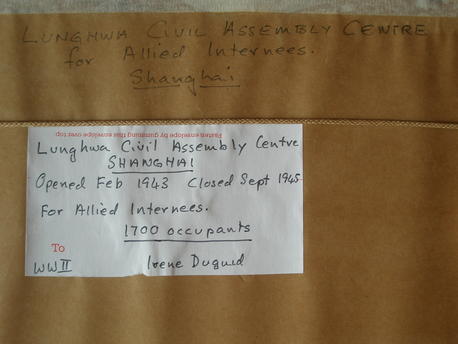 LUNGHWA CIVIL ASSEMBLY CENTRE
for Allied Internees.
Shanghai
Fasten envelope by gumming this envelope over top
Lunghwa Civil Assembly Centre
SHANGHAI
Opened Feb 1943 Closed Sept 1945
For Allied Internees.
1700 occupants
To
WWII Irene Duguid